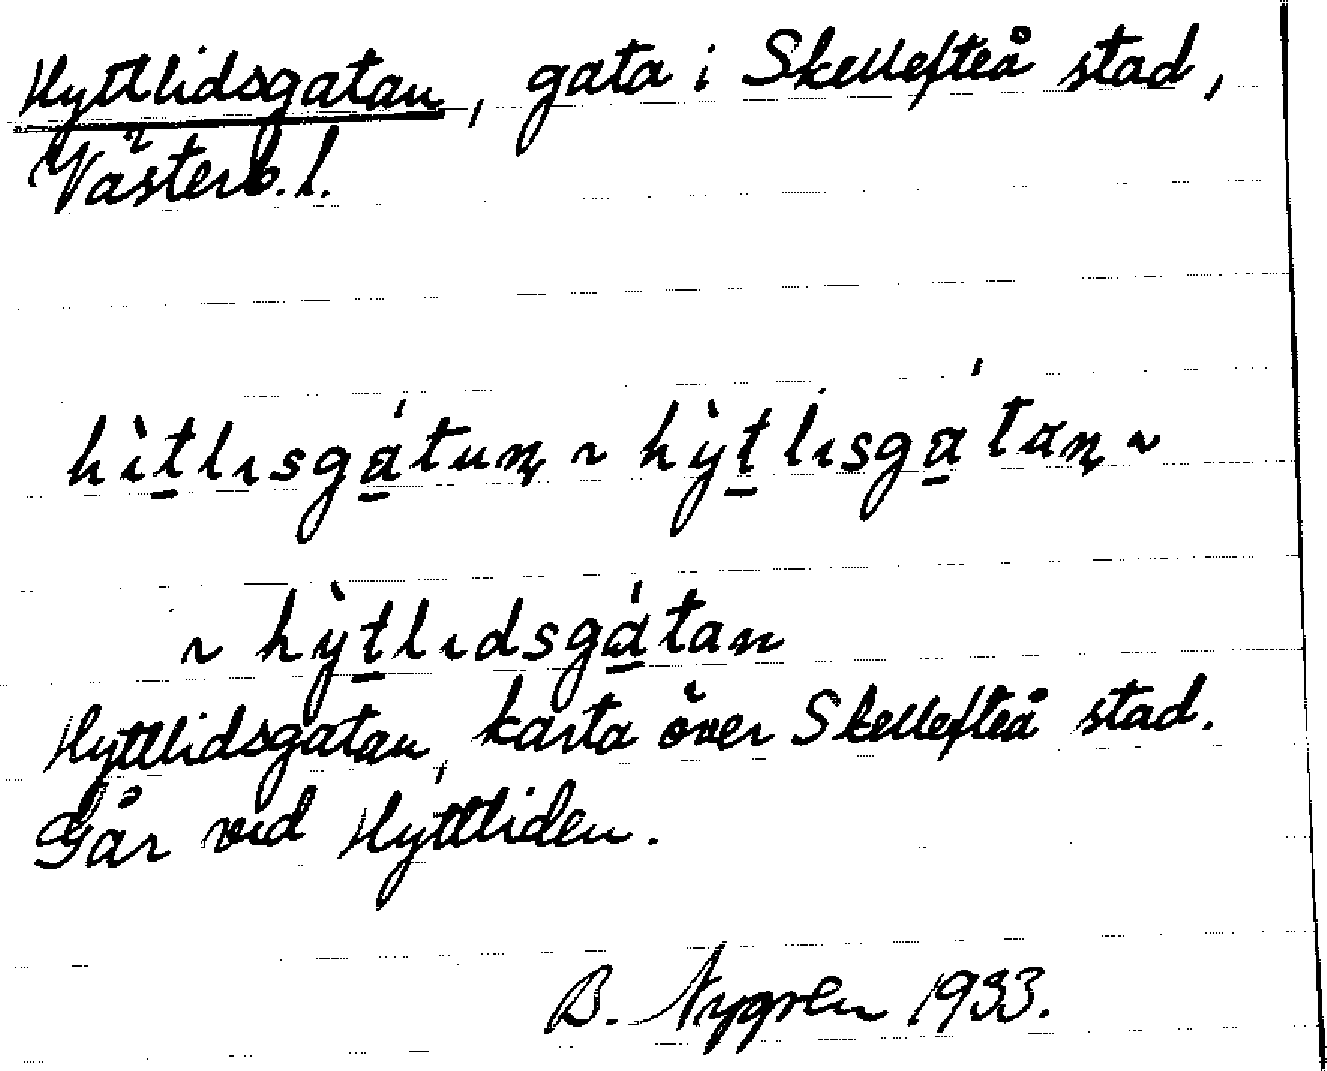 Hyttlidsgatan, gata i Skellefteå stad,
Västerb. l.
hìt̲lısga̲̍tuɳ ~ hỳt̲lısga̲̍taɳ ~
~ hỳt̲lıdsga̲̍tan
Hyttlidsgatan, karta över Skellefteå stad.
Går vid Hyttliden.
B. Nygren 1933.